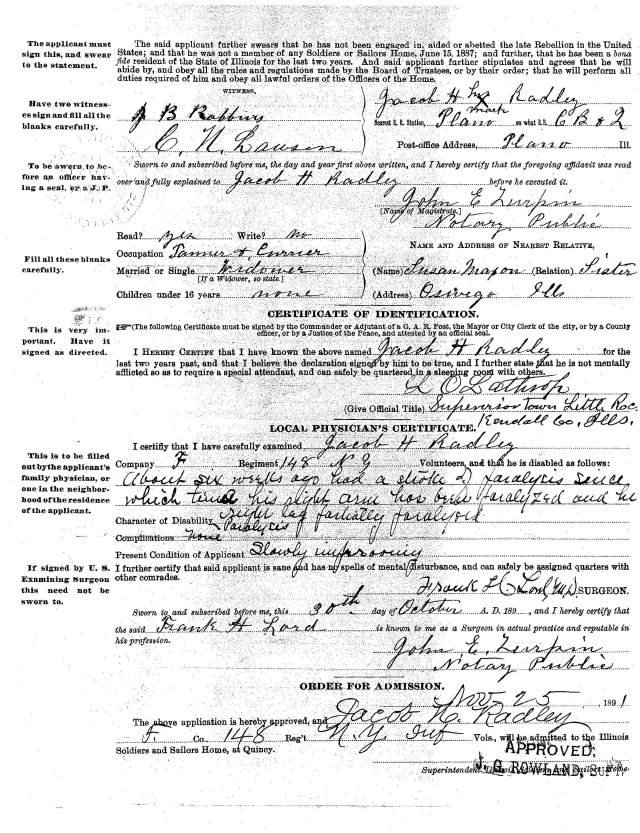 The applicant must sign this, and swear to the statement.
The said applicant further swears that he has not been engaged in, aided or abetted the late Rebellion in the United
States; and that he was not a member of any Soldiers or Sailors Home, June 15, 1887; and further, that he has been a bona
fide resident of the State of Illinois for the last two years. And said applicant further stipulates and agrees that he will
abide by, and obey all the rules and regulations made by the Board of Trustees, or by their order; that he will perform all
duties required of him and obey all lawful orders of the Officers of the Home.
WITNESS,
Have two witness-
es sign and fill all the
blanks carefully.
J B Robbins
C. N. Lawson
Jacob H his mark Radley
Nearest R. R. Station, Plano on what R.R. C B & Q
Post-office Address, Plano Ill.
To be sworn to be-
fore an officer hav-
ing a seal, or a J. P.
Sworn to and subscribed before me, the day and year first above written, and I hereby certify that the foregoing affidavit was read
over and fully explained to Jacob H Radley before he executed it.
John E
[Name of Magistrate.]
Notary Public
Fill all these blanks
carefully.
Read? yes Write? no
Occupation Tanner & Currier
Married or Single Widower
[If a Widower, so state.]
Children under 16 years none
NAME AND ADDRESS OF NEAREST RELATIVE,
(Name) Susan Mason (Relation) Sister
(Address) Oswego Ills
CERTIFICATE OF IDENTIFICATION.
This is very im-
portant. Have it
signed as directed.
(The following Certificate must be signed by the Commander or Adjutant of a G. A. R. Post, the Mayor or City Clerk of the city, or by a County
officer, or by a Justice of the Peace, and attested by an official seal.
I HEREBY CERTIFY that I have known the above named Jacob H Radley for the
last two years past, and that I believe the declaration signed by him to be true, and I further state that he is not mentally
afflicted so as to require a special attendant, and can safely be quartered in a sleeping room with others.
Lathrop
(Give Official Title) Supervisor Town Little Roc.
Kendall Co, Ills.
LOCAL PHYSICIAN'S CERTIFICATE.
This is to be filled
out by the applicant's
family physician, or
one in the neighbor-
hood of the residence
of the applicant.
I certify that I have carefully examined Jacob H Radley
Company F Regiment 148 N Y Volunteers, and that he is disabled as follows:
About six weeks ago had a stroke of paralysis since
which time his right arm has been paralyzed and the
right leg partially paralyzed
Character of Disability Paralysis
Complications none
Present Condition of Applicant Slowly improoving
If signed by U. S.
Examining Surgeon
this need not be
sworn to.
I further certify that said applicant is sane and has no spells of mental disturbance, and can safely be assigned quarters with
other comrades.
Frank H Lord M.D SURGEON.
Sworn to and subscribed before me, this 30th day of October A. D. 189 , and I hereby certify that
the said Frank H Lord is known to me as a Surgeon in actual practice and reputable in
his profession.
John E
Notary Public
ORDER FOR ADMISSION.
Nov 25 1891
The above application is hereby approved, and Jacob H. Radley
F. Co., 148 Reg't N.Y. Inf Vols., will be admitted to the Illinois
Soldiers and Sailors Home, at Quincy.
APPROVED;
J. G. ROWLAND, SUPT.
Superintendent Illinois Soldiers and Sailors Home.